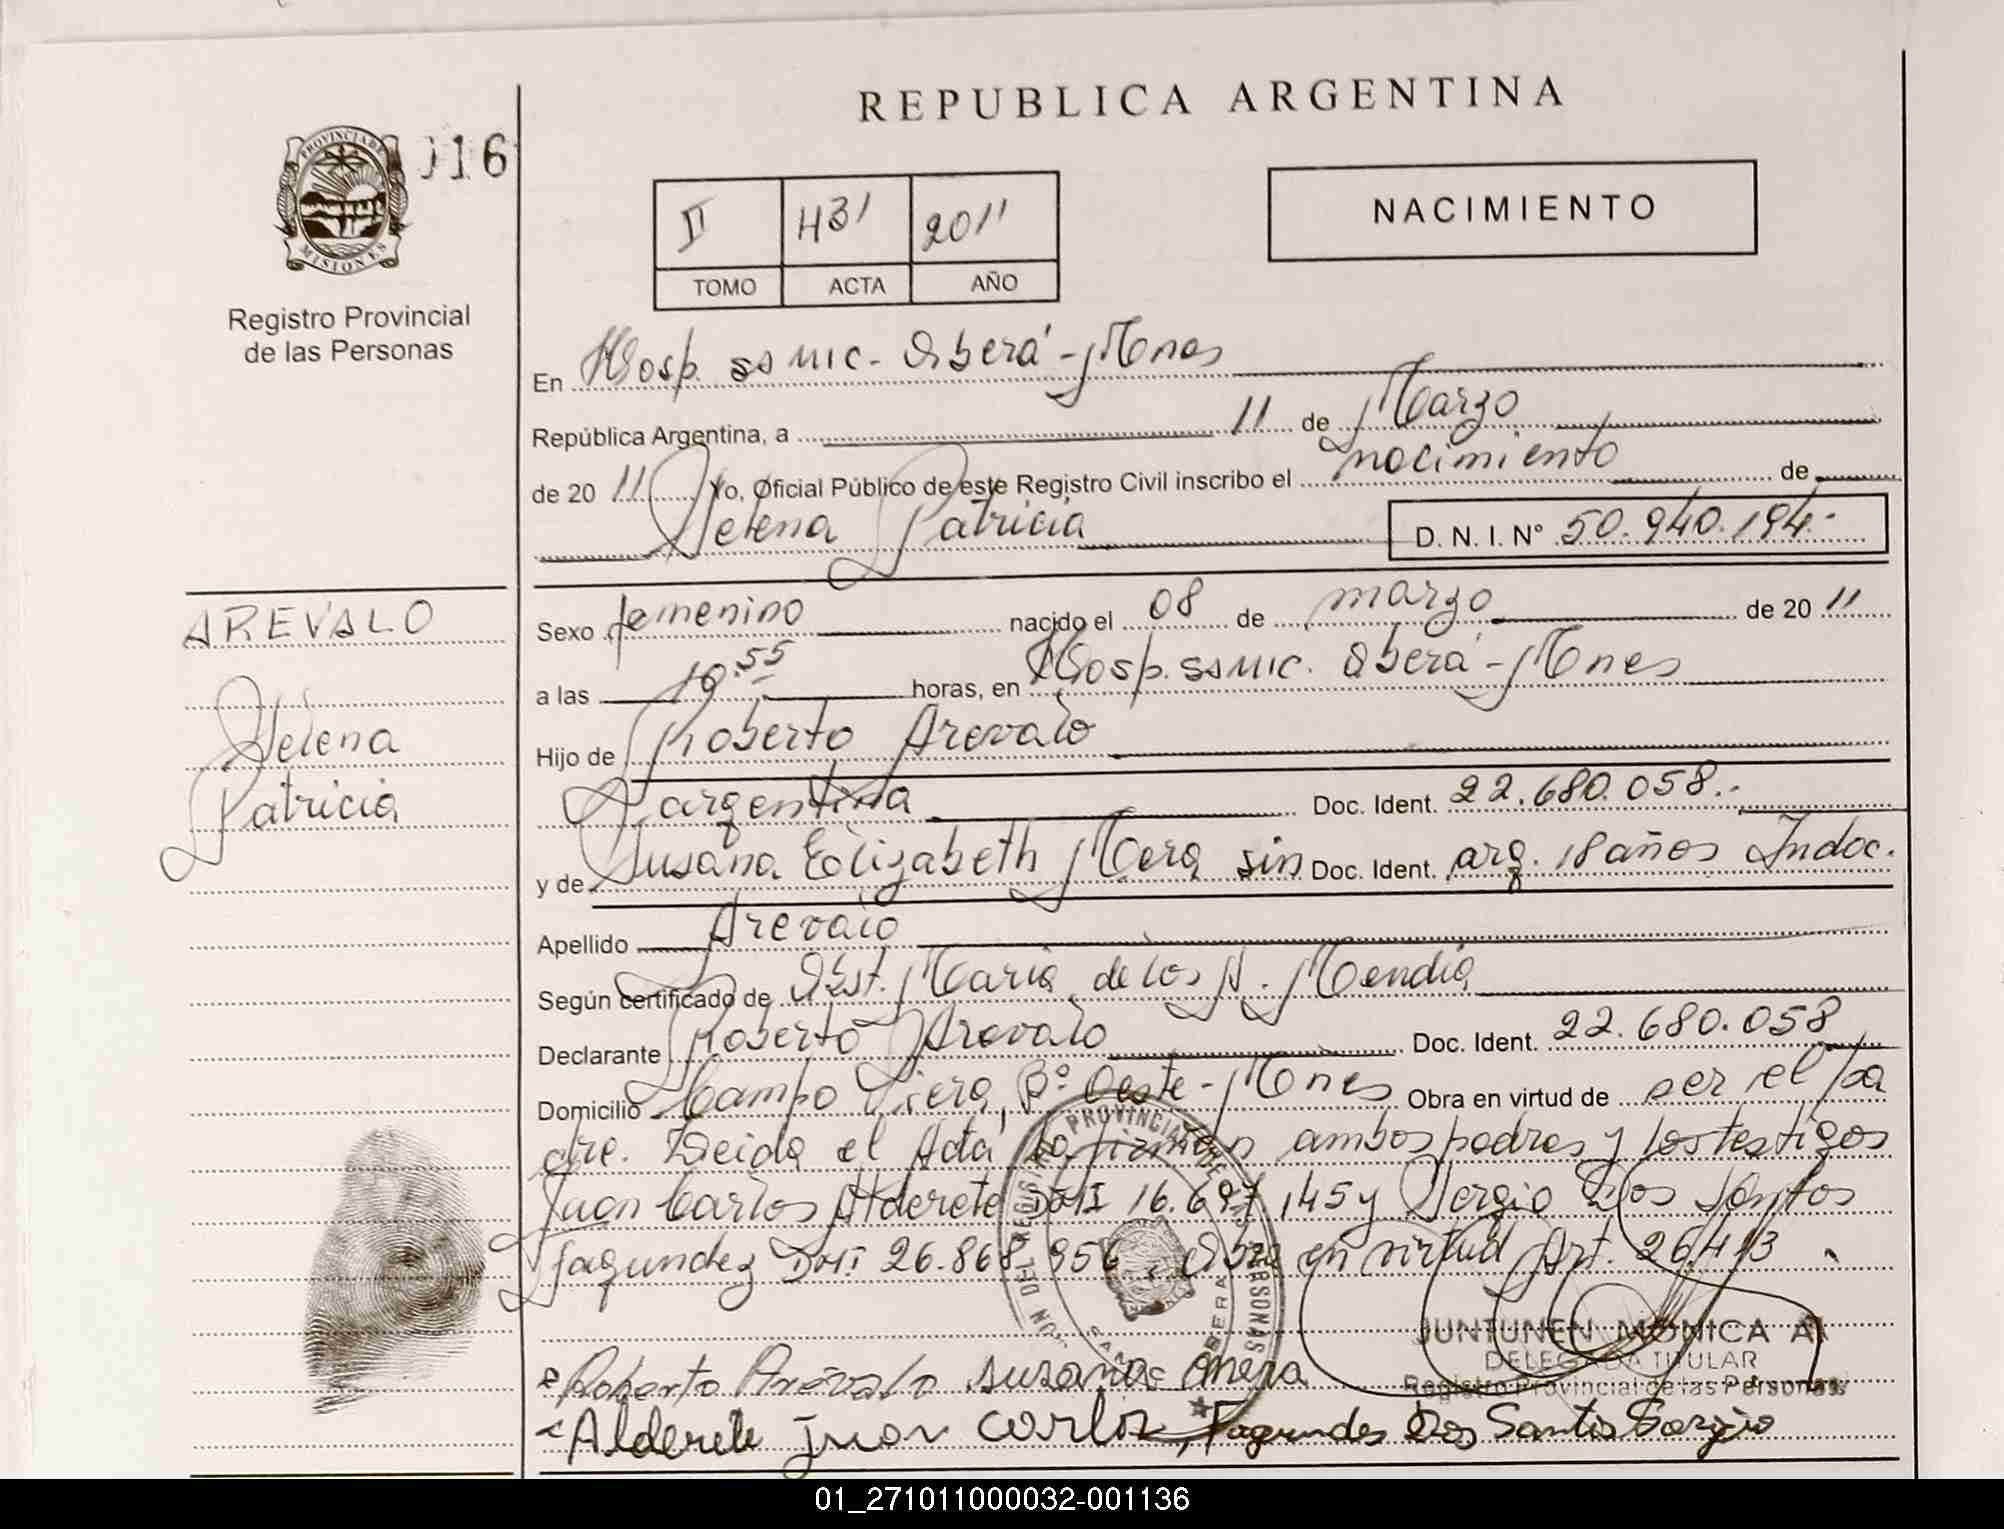 REPUBLICA ARGENTINA
PROVINCIA DE
MISIONES
16
II 431 2011
TOMO ACTA AÑO
NACIMIENTO
Registro Provincial
de las Personas
En Hosp. SSMIC - Oberá - Mnes
República Argentina, a 11 de Marzo
de 20 11 Yo, Oficial Público de este Registro Civil inscribo el nacimiento de
Helena Patricia D. N. I. Nº 50.940.194.-
AREVALO
Helena
Patricia
Sexo femenino nacido el 08 de marzo de 20 11
a las 19.55 horas, en Hosp. SSMIC. Oberá - Mnes
Hijo de Roberto Arevalo
argentina Doc. Ident. 22.680.058.-
y de Susana Elizabeth Mera sin Doc. Ident. arg. 18 años Indoc.
Apellido Arevalo
Según certificado de Obst. Maria de los A. Mendia
Declarante Roberto Arevalo Doc. Ident. 22.680.058
Domicilio Campo Viera, Bº Oeste - Mnes Obra en virtud de ser el pa
dre. Leida el Acta la firman ambos padres y los testigos
Juan Carlos Alderete DNI 16.697.145 y Sergio Dos Santos
Fagundez DNI 26.868.956. Obra en virtud Art. 26.413
JUNTUNEN MONICA A
DELEGADA TITULAR
Registro Provincial de las Personas
Roberto Arevalo Susana Mera
Alderete juan carlos, Fagundes Dos Santos Sergio
01_271011000032-001136